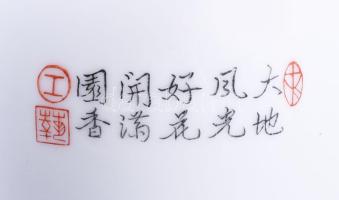 大地
風光
好花
開滿
園香
工